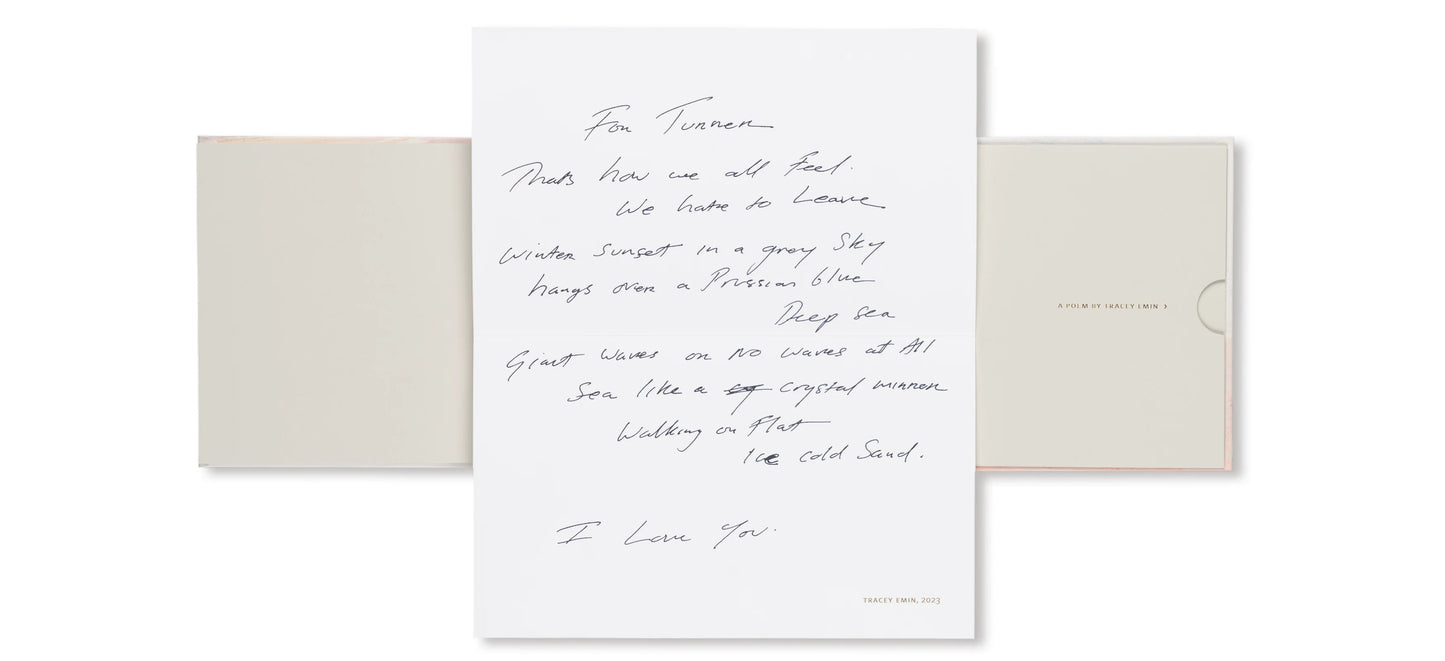 For Turner
Thats how we all Feel.
We hate to Leave
Winter Sunset in a grey Sky
hangs over a Prussian blue
Deep sea
Giant waves or No waves at All
Sea like a crystal mirror
Walking on Flat
Ice cold Sand.
I Love You.
TRACEY EMIN, 2023
A POEM BY TRACEY EMIN >